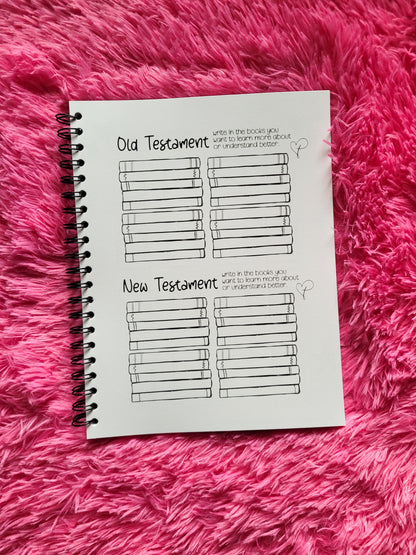 Old Testament
write in the books you
want to learn more about
or understand better
New Testament
write in the books you
want to learn more about
or understand better